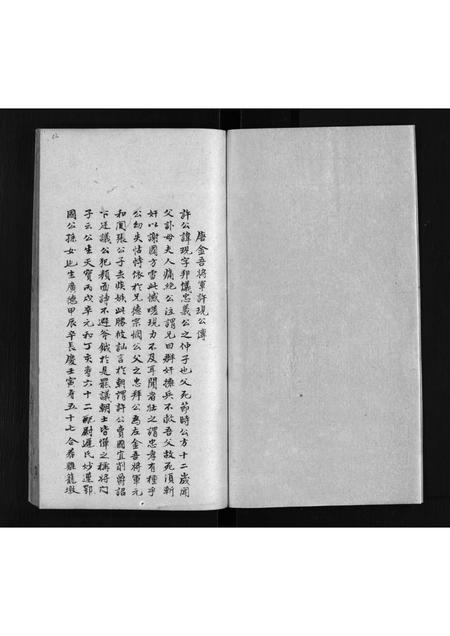 唐金吾將軍許現公傳
許公諱現字邦儀忠義公之仲子也父死節時公方十二歲聞
父訃母夫人痛絕公泣謂兄曰群奸擁兵不救吾父故死須斬
奸以謝國方雪此憾嗟現力不及耳聞者壯之謂忠孝有種乎
公幼失怙恃依於兄德宗憫公父之忠拜公為左金吾將軍元
和間張公子去疾嫉此勝彼訕言於朝謂許公賣國宜削爵詔
下廷議公犯顏面諍不避斧鉞於是羣議朝士皆偉之稱將門
子云公生天寶丙戌卒元和丁亥壽六十二配尉遲氏妙蓮鄂
國公孫女也生廣德甲辰卒長慶壬寅壽五十七合葬雞籠墩